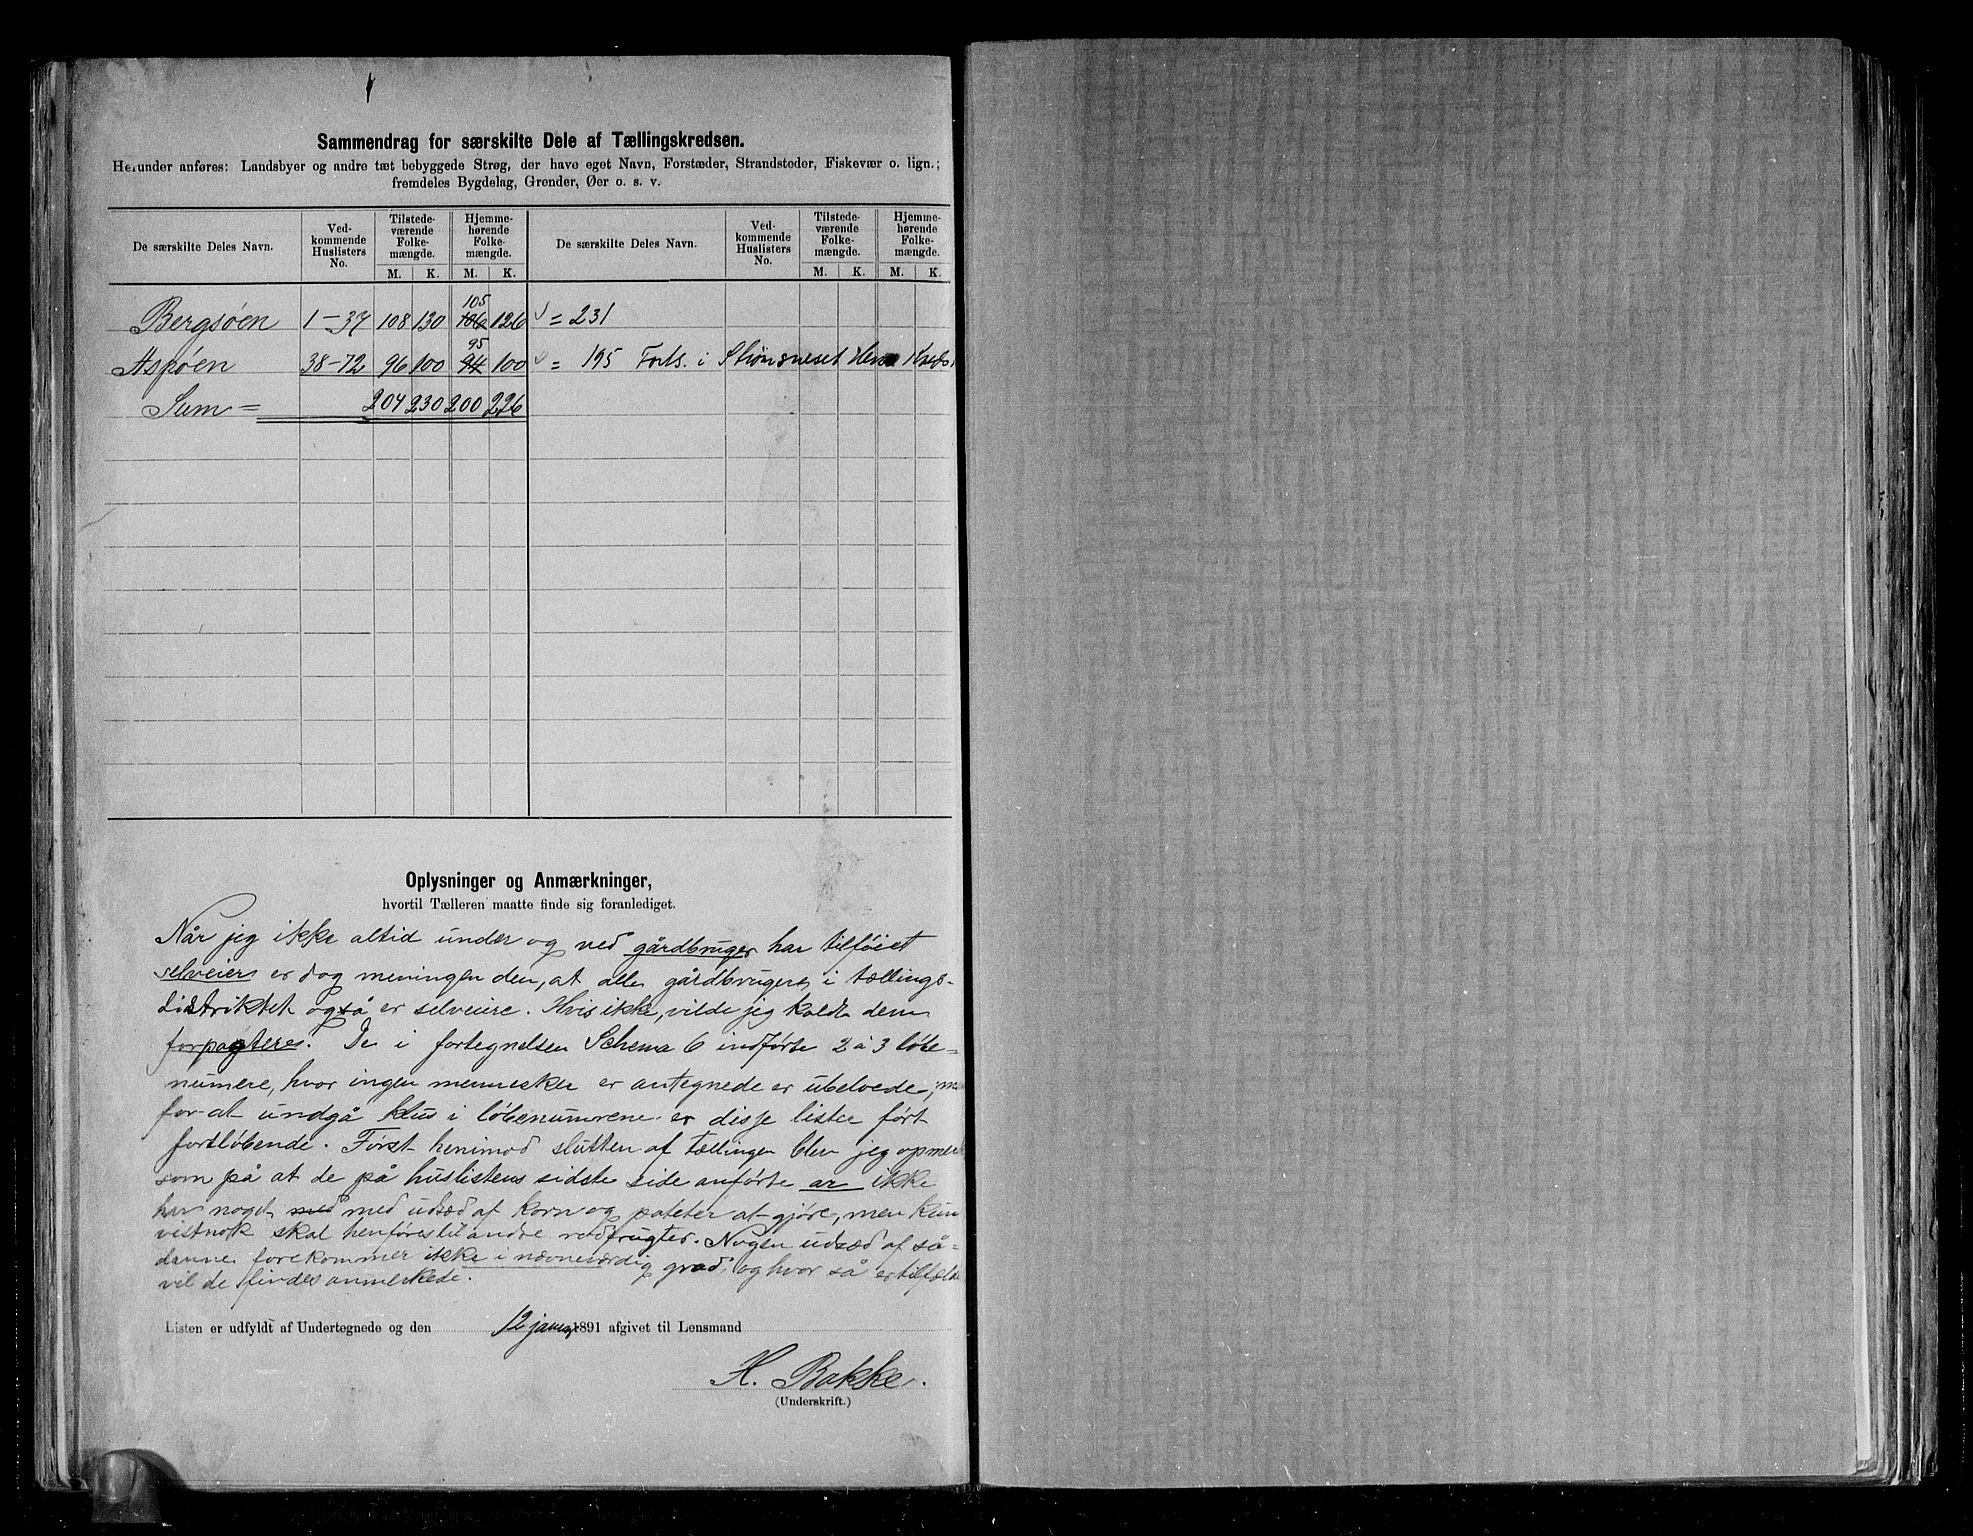 Sammendrag for særskilte Dele af Tællingskredsen.
Herunder anføres: Landsbyer og andre tæt bebyggede Strøg, der have eget Navn, Forstæder, Strandsteder, Fiskevær o. lign.;
fremdeles Bygdelag, Grender, Øer o. s. v.
De særskilte Deles Navn. Ved-kommende Huslisters No. Tilstede-værende Folke-mængde. Hjemme-hørende Folke-mængde. De særskilte Deles Navn. Ved-kommende Huslisters No. Tilstede-værende Folke-mængde. Hjemme-hørende Folke-mængde.
M. K. M. K. M. K. M. K.
105
Bergsøen 1-37 108 130 106 126 = 231
95
Aspøen 38-72 96 100 94 100 = 195 Forts. i Strømsneset
Sum = 204 230 200 226
Oplysninger og Anmærkninger,
hvortil Tælleren maatte finde sig foranlediget.
Når jeg ikke altid under og ved gårdbruger har tilføiet
selveier er dog meningen den, at alle gårdbrugere i tællings-
distriktet også er selveiere. Hvis ikke, vilde jeg kaldt dem
forpagtere. De i fortegnelsen Schema 6 indførte 2 à 3 løbe-
numere, hvor ingen mennesker er antegnede er ubeboede,
for at undgå klus i løbenumrene er disse lister ført
fortløbende. Først henimod slutten af tællingen blev jeg opmerk
som på at de på huslistens sidste side anførte ar ikke
har noget med med udsæd af korn og poteter at gjøre, men kun
vistnok skal henføres til andre rodfrugter. Nogen udsæd af så-
danne forekommer ikke i nævneværdig grad, og hvor så er tilfælde
vil de findes anmerkede.
Listen er udfyldt af Undertegnede og den 12 januar 1891 afgivet til Lensmand
H. Bakke.
(Underskrift.)